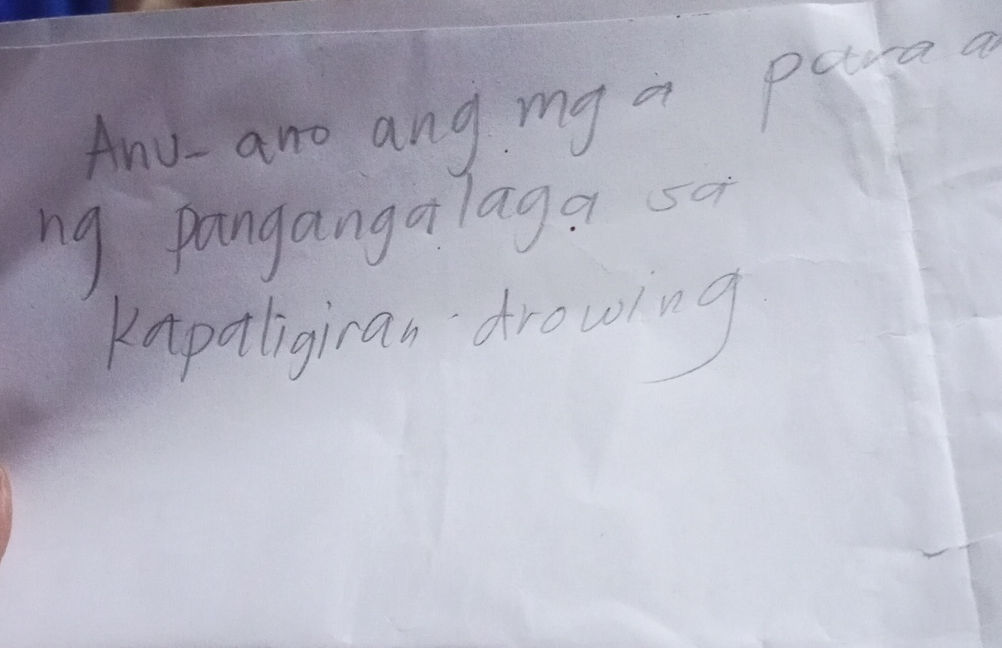 Anu-ano ang mga paraa
ng pangangalaga sa
kapaligiran drowing